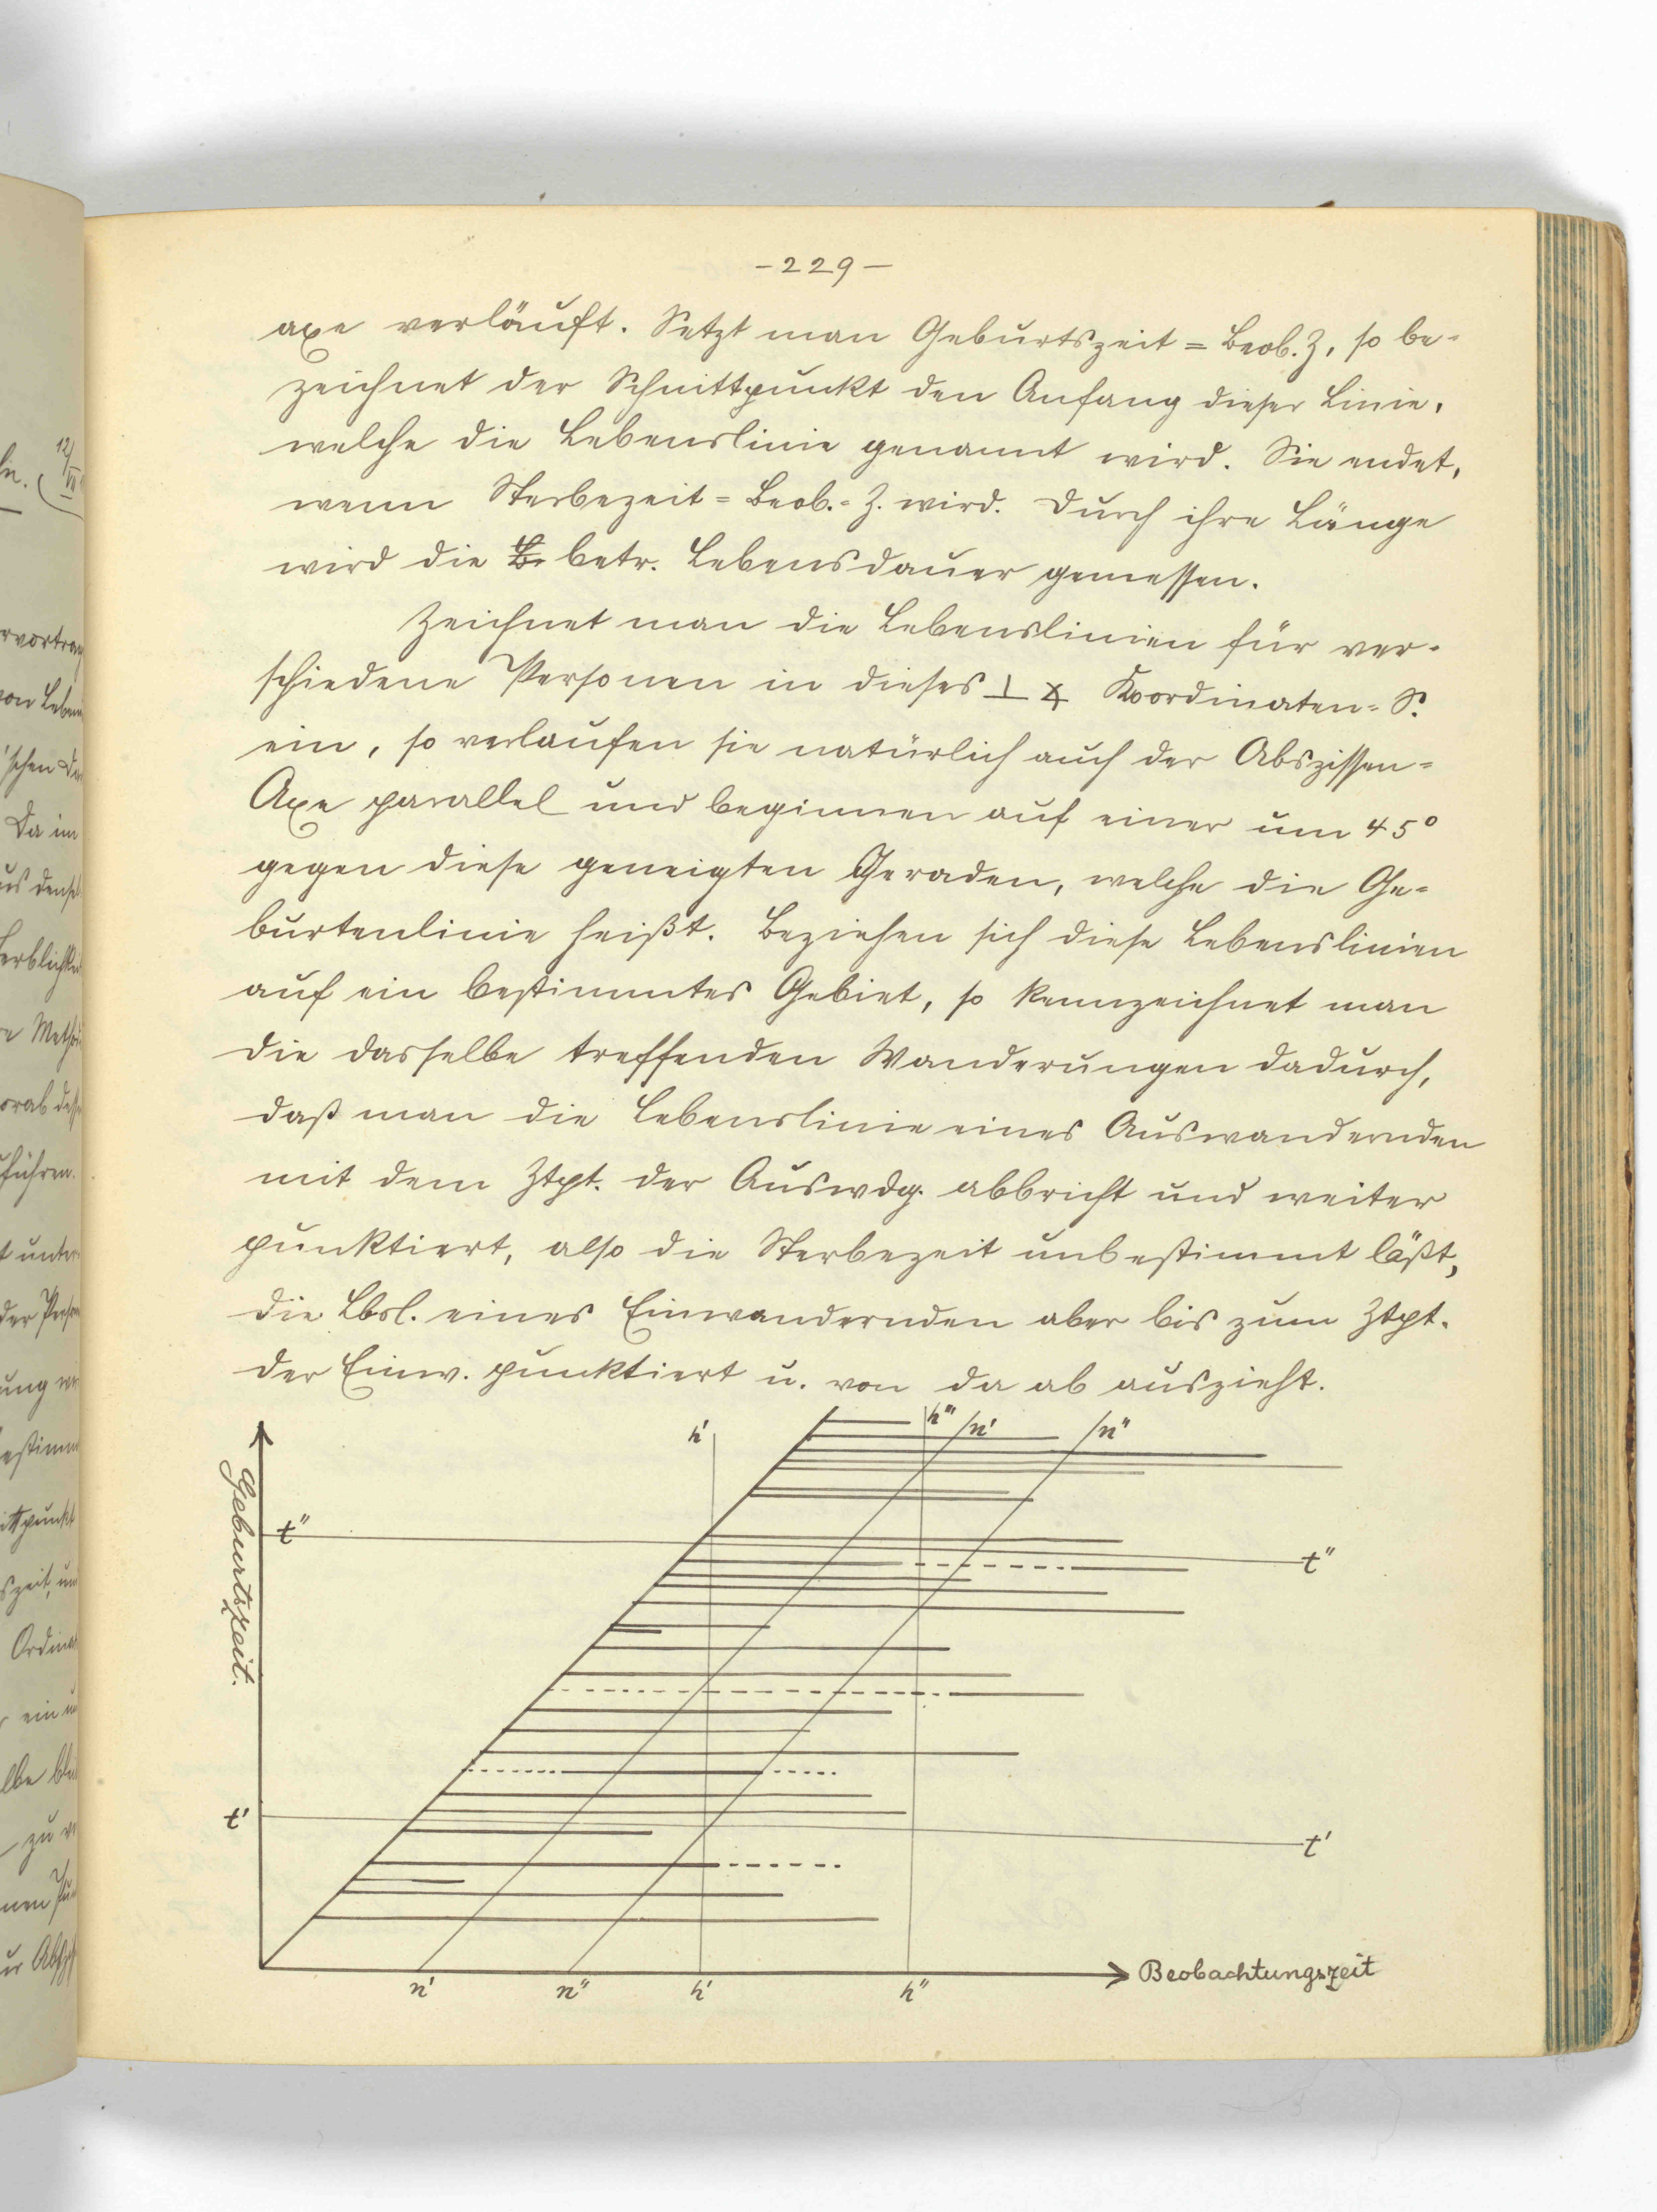 - 229 -
axe verläuft. Setzt man Geburtszeit = Beob. Z, so be-
zeichnet der Schnittpunkt den Anfang dieser Linie,
welche die Lebenslinie genannt wird. Sie endet,
wenn Sterbezeit = Beob.-Z. wird. Durch ihre Länge
wird die betr. Lebensdauer gemessen.
Zeichnet man die Lebenslinien für ver-
schiedene Personen in dieses ⊥ Koordinaten-S.
ein, so verlaufen sie natürlich auch der Abszissen-
Axe parallel und beginnen auf einer um 45°
gegen diese geneigten Geraden, welche die Ge-
burtenlinie heißt. Beziehen sich diese Lebenslinien
auf ein bestimmtes Gebiet, so kennzeichnet man
die dasselbe treffenden Wanderungen dadurch,
daß man die Lebenslinie eines Auswandernden
mit dem Ztpt. der Auswdg. abbricht und weiter
punktiert, also die Sterbezeit unbestimmt läßt,
die Lbsl. eines Einwandernden aber bis zum Ztpt.
der Einw. punktiert u. von da ab auszieht.
h' h'' n' n''
Geburtszeit.
t'' t''
t' t'
n' n'' h' h''
Beobachtungszeit